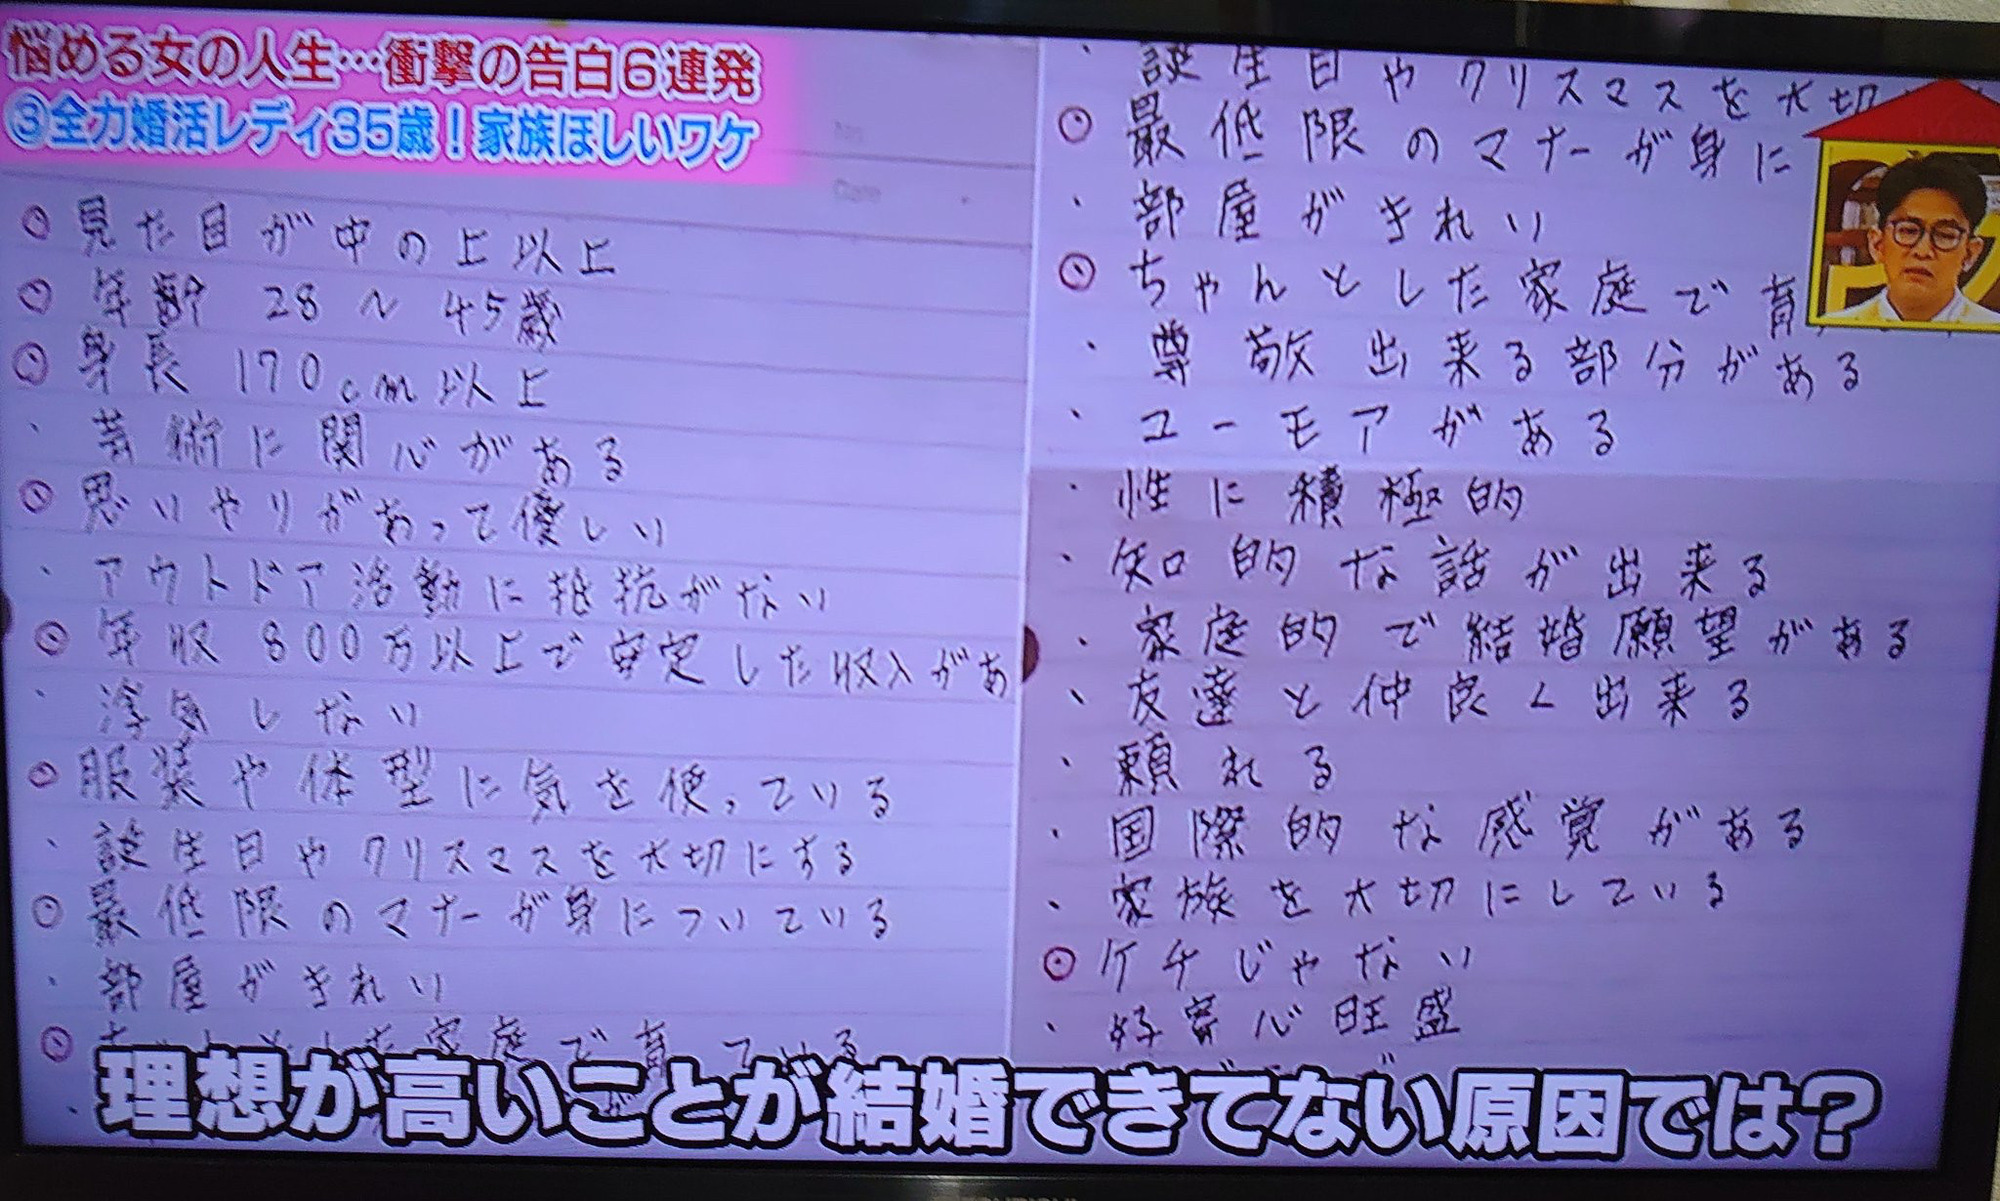 悩める女の人生…衝撃の告白6連発
③全力婚活レディ35歳!家族ほしいワケ
◎見た目が中の上以上
◎年齢 28〜45歳
◎身長 170cm以上
・芸術に関心がある
◎思いやりがあって優しい
・アウトドア活動に抵抗がない
◎年収 800万以上で安定した収入があ
・浮気しない
◎服装や体型に気を使っている
・誕生日やクリスマスを大切にする
◎最低限のマナーが身についている
・部屋がきれい
◎ちゃんとした家庭で育っている
・誕生日やクリスマスを大切
◎最低限のマナーが身に
・部屋がきれい
◎ちゃんとした家庭で育
・尊敬出来る部分がある
・ユーモアがある
・性に積極的
・知的な話が出来る
・家庭的で結婚願望がある
・友達と仲良く出来る
・頼れる
・国際的な感覚がある
・家族を大切にしている
◎ケチじゃない
・好奇心旺盛
理想が高いことが結婚できてない原因では?